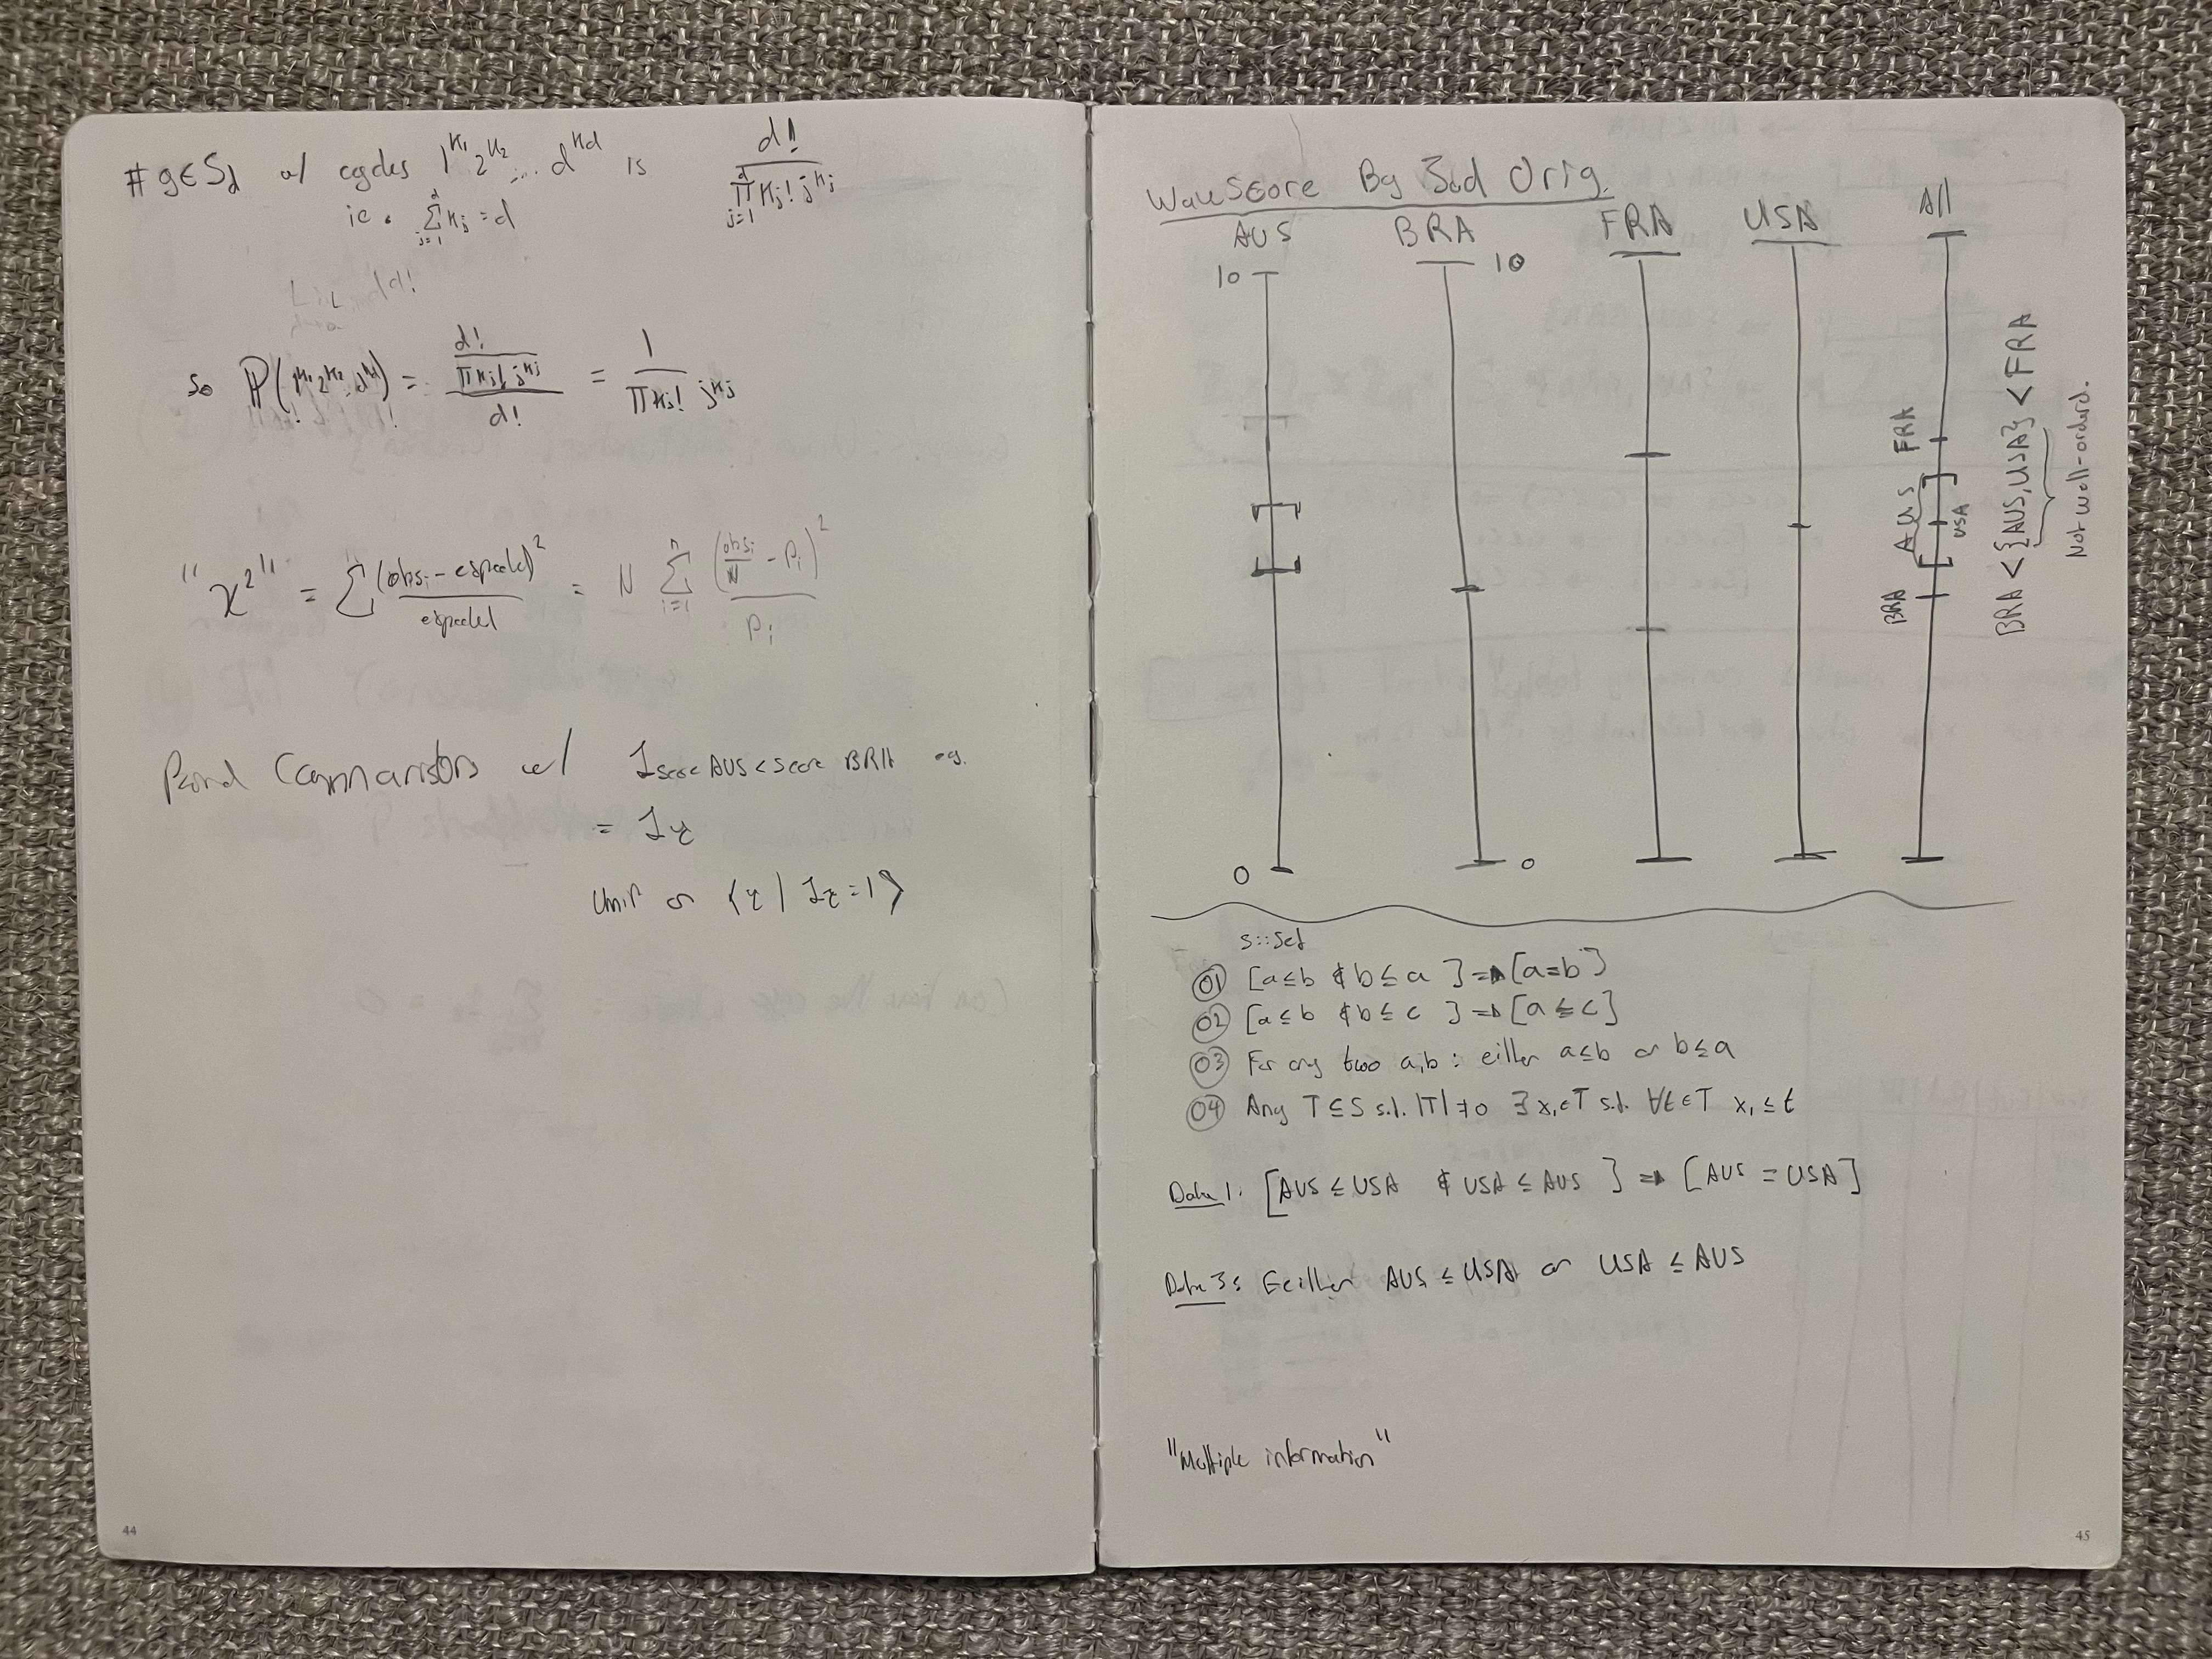 # g∈S_d w/ cycles 1^{k_1} 2^{k_2} ... d^{k_d} is d! / ∏_{j=1}^{d} k_j! j^{k_j}
ie. ∑_{j=1}^{d} k_j = d
so P(1^{k_1} 2^{k_2} ... d^{k_d}) = (d! / ∏ k_j! j^{k_j}) / d! = 1 / ∏ k_j! j^{k_j}
"χ²" = ∑ (obs_i - expected)² / expected = N ∑_{i=1}^{n} (obs_i/N - P_i)² / P_i
w/ 1 score AUS < score BRA eg.
= 1_τ
Unif on {τ | 1_τ = 1}
44
Wave Score By Jud Orig.
AUS BRA FRA USA All
10 10
BRA AUS FRA
USA
0 0
BRA < {AUS, USA} < FRA
Not well-orderd.
S::Set
01 [a≤b & b≤a] ⇒ [a=b]
02 [a≤b & b≤c] ⇒ [a≤c]
03 For any two a,b : either a≤b or b≤a
04 Any T⊆S s.t. |T|≠0 ∃ x_1∈T s.t. ∀t∈T x_1≤t
1: [AUS ≤ USA & USA ≤ AUS] ⇒ [AUS = USA]
3: Either AUS ≤ USA or USA ≤ AUS
"Multiple information"
45